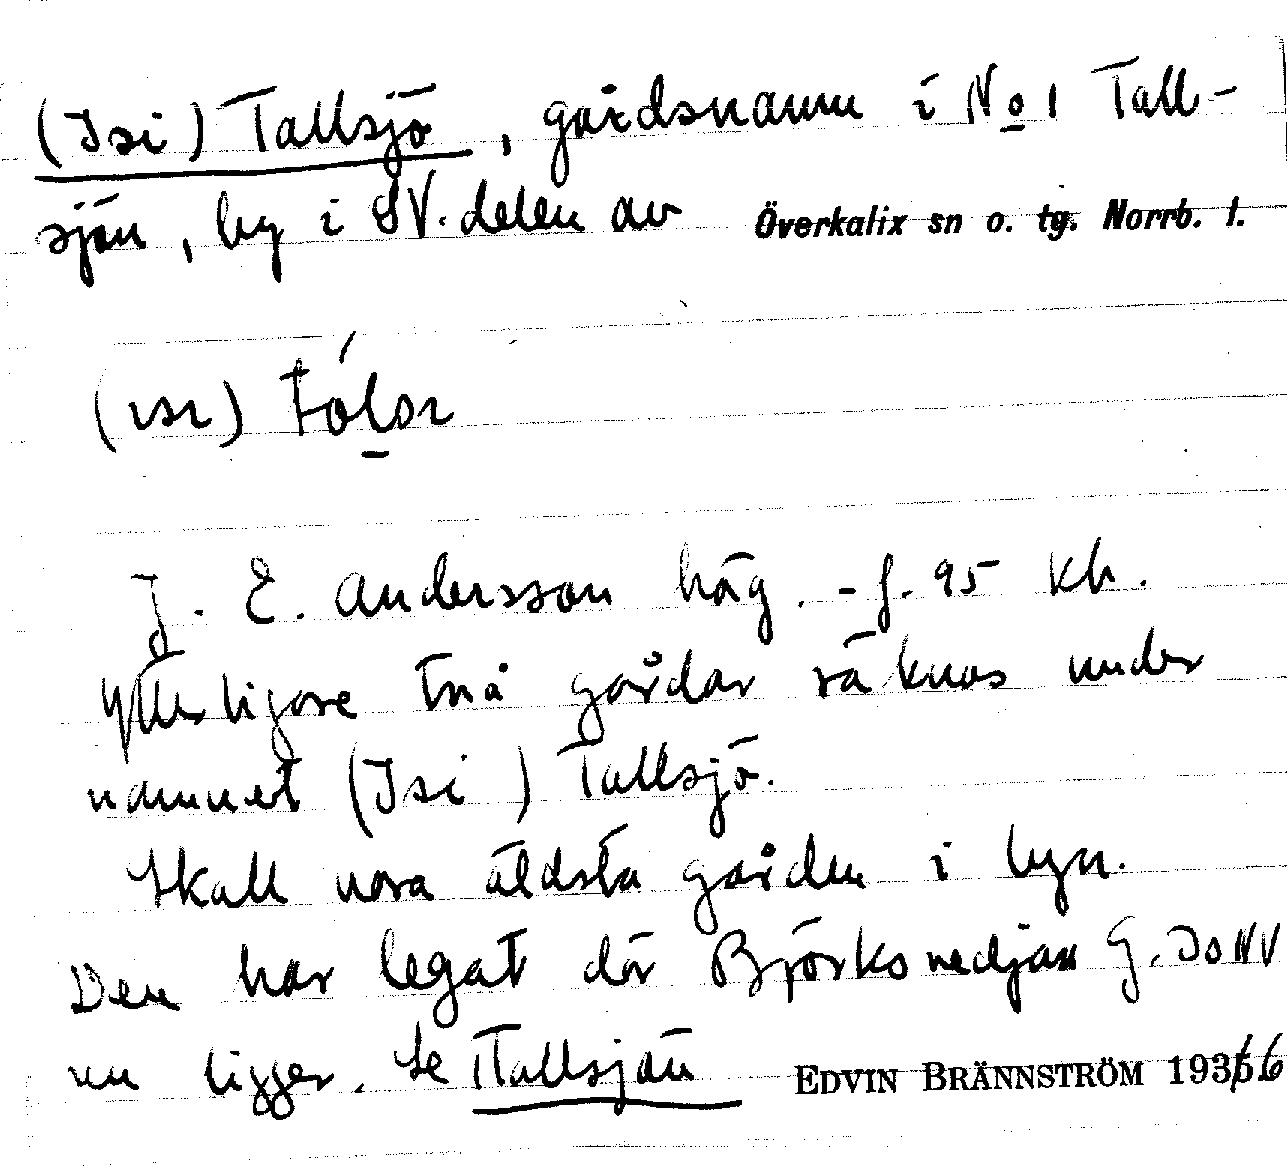 (Isi) Tallsjö, gårdsnamn i No 1 Tall-
sjön, by i SV. delen av Överkalix sn o. tg. Norrb. l.
J. E. Andersson häg. - f. 95 kh.
Ytterligare två gårdar räknas under
namnet (Isi) Tallsjö.
Skall vara äldsta gården i byn.
Den har legat där Björksmedjan G. Jo NV
nu ligger. Se Tallsjön EDVIN BRÄNNSTRÖM 1936